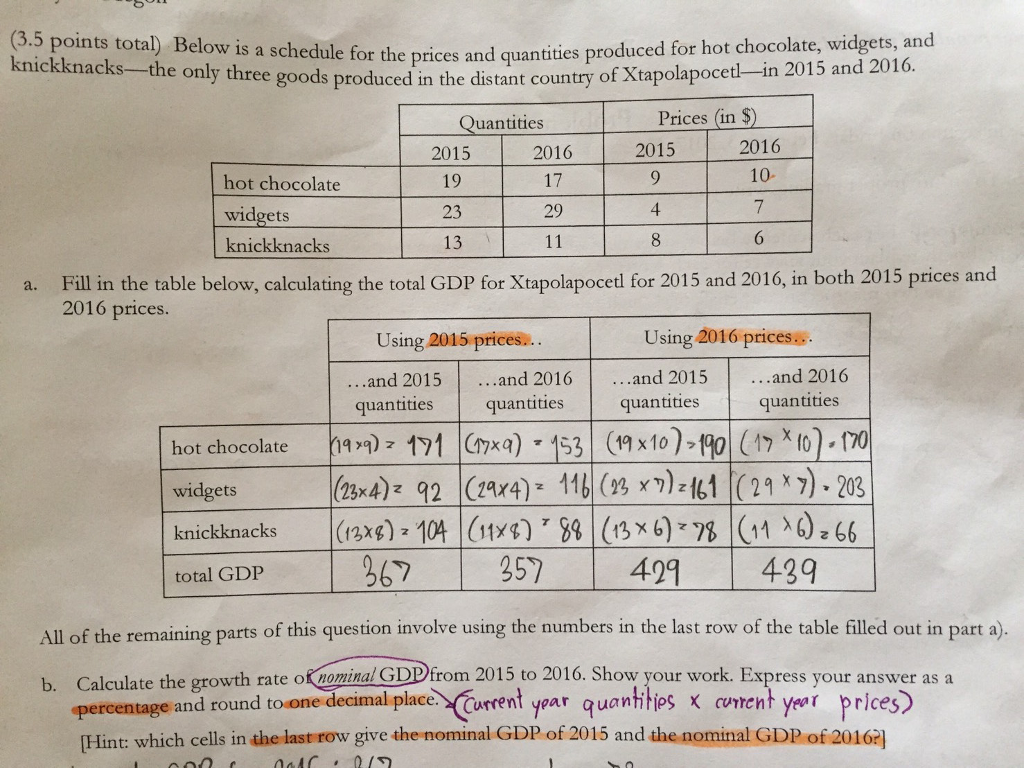 (3.5 points total) Below is a schedule for the prices and quantities produced for hot chocolate, widgets, and
knickknacks—the only three goods produced in the distant country of Xtapolapocetl—in 2015 and 2016.
Quantities Prices (in $)
2015 2016 2015 2016
hot chocolate 19 17 9 10
widgets 23 29 4 7
knickknacks 13 11 8 6
a. Fill in the table below, calculating the total GDP for Xtapolapocetl for 2015 and 2016, in both 2015 prices and
2016 prices.
Using 2015 prices... Using 2016 prices...
...and 2015 ...and 2016 ...and 2015 ...and 2016
quantities quantities quantities quantities
hot chocolate (19x9) = 171 (17x9) = 153 (19x10) = 190 (17 x 10) = 170
widgets (23x4) = 92 (29x4) = 116 (23 x 7) = 161 (29 x 7) = 203
knickknacks (13x8) = 104 (11x8) = 88 (13 x 6) = 78 (11 x 6) = 66
total GDP 367 357 429 439
All of the remaining parts of this question involve using the numbers in the last row of the table filled out in part a).
b. Calculate the growth rate of nominal GDP from 2015 to 2016. Show your work. Express your answer as a
percentage and round to one decimal place. (current year quantities x current year prices)
[Hint: which cells in the last row give the nominal GDP of 2015 and the nominal GDP of 2016?]